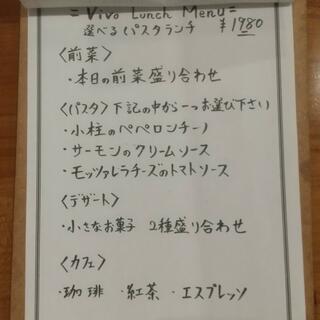 = Vivo Lunch Menu =
選べるパスタランチ ¥1980
〈前菜〉
・本日の前菜盛り合わせ
〈パスタ〉下記の中から一つお選び下さい
・小柱のペペロンチーノ
・サーモンのクリームソース
・モッツァレラチーズのトマトソース
〈デザート〉
・小さなお菓子 2種盛り合わせ
〈カフェ〉
・珈琲 ・紅茶 ・エスプレッソ